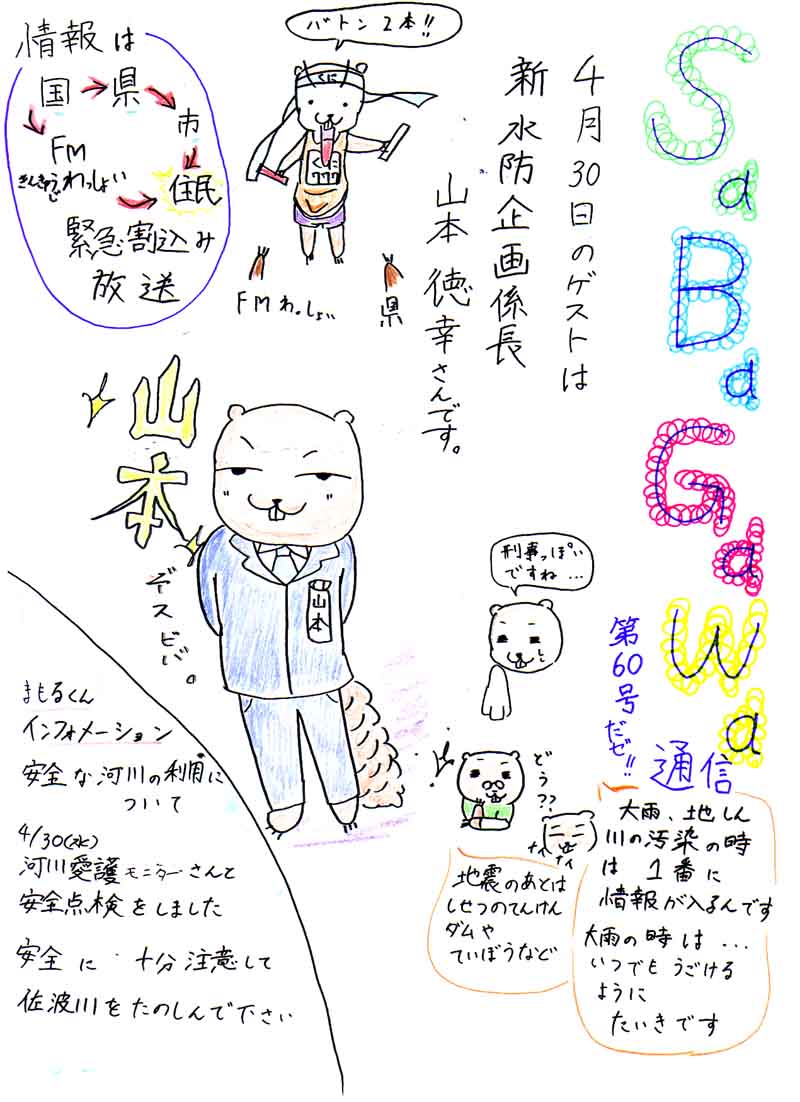 SaBaGaWa
通信
第60号だぜ!!
4月30日のゲストは
新水防企画係長
山本徳幸さんです。
バトン2本!!
くに
くに
777
FMわっしょい
県
情報は
国→県→市
FM
わっしょい
住民
緊急割込み
放送
山本
デスビバ。
山本
刑事っぽい
ですね...
どう??
大雨、地しん
川の汚染の時
は 1番に
情報が入るんです
大雨の時は...
いつでもうごける
ように
たいきです
地震のあとは
しせつのてんけん
ダムや
ていぼうなど
まもるくん
インフォメーション
安全な河川の利用に
ついて
4/30(水)
河川愛護モニターさんと
安全点検をしました
安全に 十分注意して
佐波川をたのしんで下さい